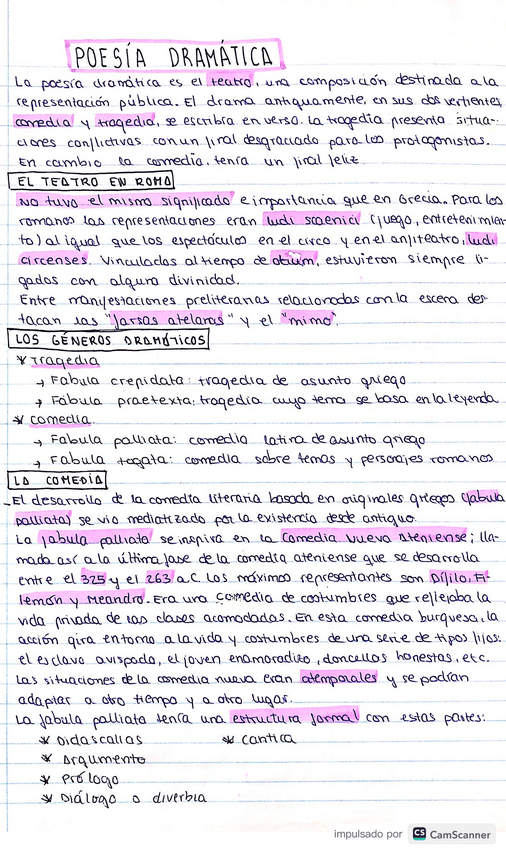 POESÍA DRAMÁTICA
La poesía dramática es el teatro, una composición destinada a la
representación pública. El drama antiguamente, en sus dos vertientes,
comedia y tragedia, se escribía en verso. La tragedia presenta situa-
ciones conflictivas con un final desgraciado para los protagonistas.
En cambio la comedia, tenía un final feliz.
EL TEATRO EN ROMA
No tuvo el mismo significado e importancia que en Grecia. Para los
romanos las representaciones eran ludi scaenici (juego, entretenimien-
to) al igual que los espectáculos en el circo y en el anfiteatro, ludi
circenses. Vinculadas al tiempo de otium, estuvieron siempre li-
gados con alguna divinidad.
Entre manifestaciones preliterarias relacionadas con la escena des-
tacan las "farsas atelanas" y el "mimo".
LOS GÉNEROS DRAMÁTICOS
* Tragedia
→ Fabula crepidata: tragedia de asunto griego
→ Fábula praetexta: tragedia cuyo tema se basa en la leyenda
* comedia.
→ Fabula palliata: comedia latina de asunto griego
→ Fábula togata: comedia sobre temas y personajes romanos
LA COMEDIA
- El desarrollo de la comedia literaria basada en originales griegos (fabula
palliata) se vio mediatizado por la existencia desde antiguo.
La fabula palliata se inspira en la Comedia Nueva Ateniense; lla-
mada así a la última fase de la comedia ateniense que se desarrolla
entre el 325 y el 263 a.C. Los máximos representantes son Dífilo, Fi-
lemón y Meandro. Era una comedia de costumbres que reflejaba la
vida privada de las clases acomodadas. En esta comedia burguesa, la
acción gira entorno a la vida y costumbres de una serie de tipos fijos:
el esclavo avispado, el joven enamoradizo, doncellas honestas, etc.
Las situaciones de la comedia nueva eran atemporales y se podían
adaptar a otro tiempo y a otro lugar.
La fabula palliata tenía una estructura formal con estas partes:
* Didascalias * cantica
* Argumento
* Prólogo
* Diálogo o diverbia
impulsado por CS CamScanner